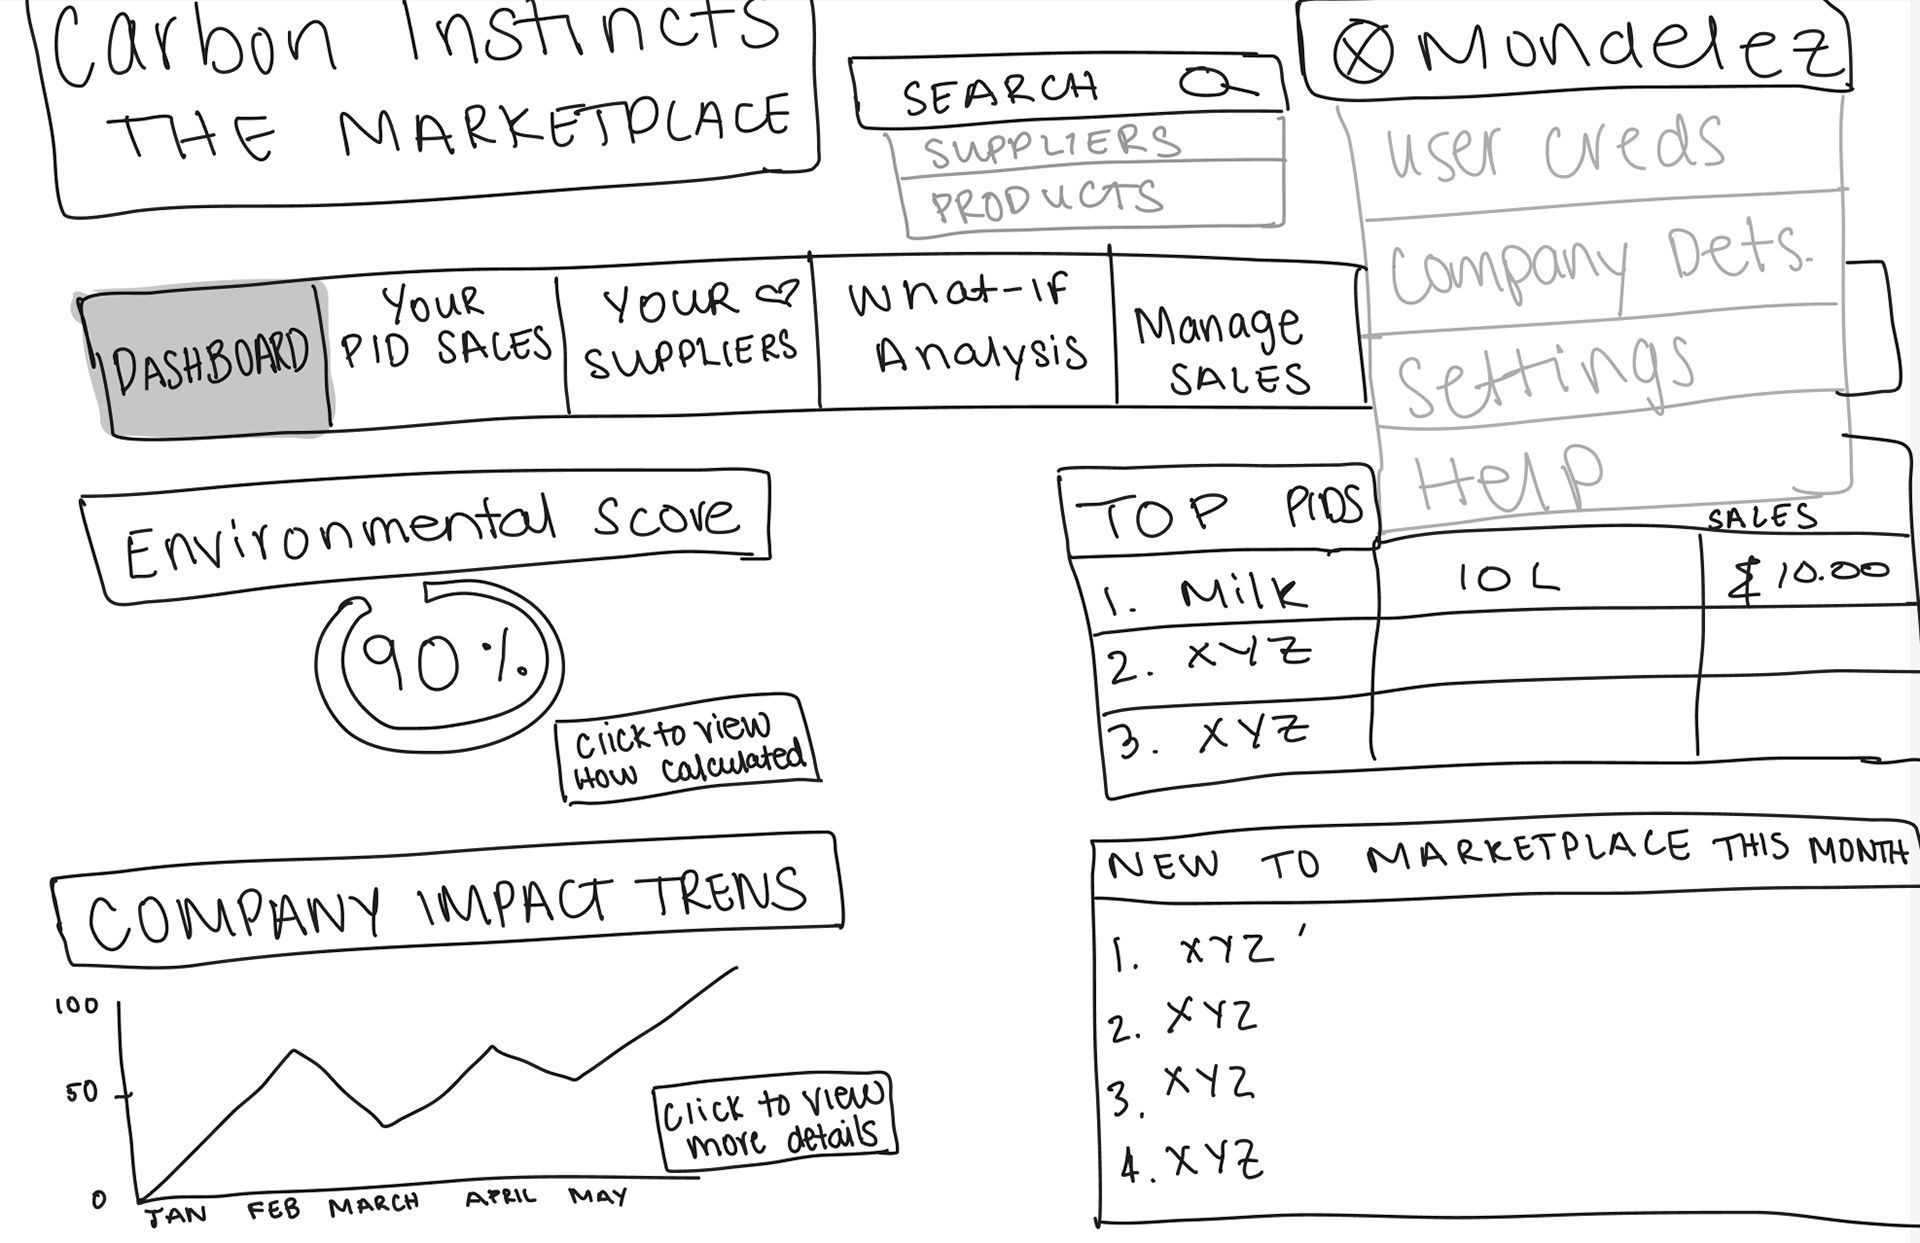 Carbon Instincts
THE MARKETPLACE
SEARCH
SUPPLIERS
PRODUCTS
Mondelez
user creds
Company Dets.
Settings
Help
DASHBOARD
YOUR
PID SALES
YOUR
SUPPLIERS
What-If
Analysis
Manage
SALES
Environmental Score
90%
Click to view
How Calculated
TOP PIDS
SALES
1. Milk
10 L
$10.00
2. XYZ
3. XYZ
COMPANY IMPACT TRENS
100
50
0
JAN FEB MARCH APRIL MAY
Click to view
more details
NEW TO MARKETPLACE THIS MONTH
1. XYZ
2. XYZ
3. XYZ
4. XYZ